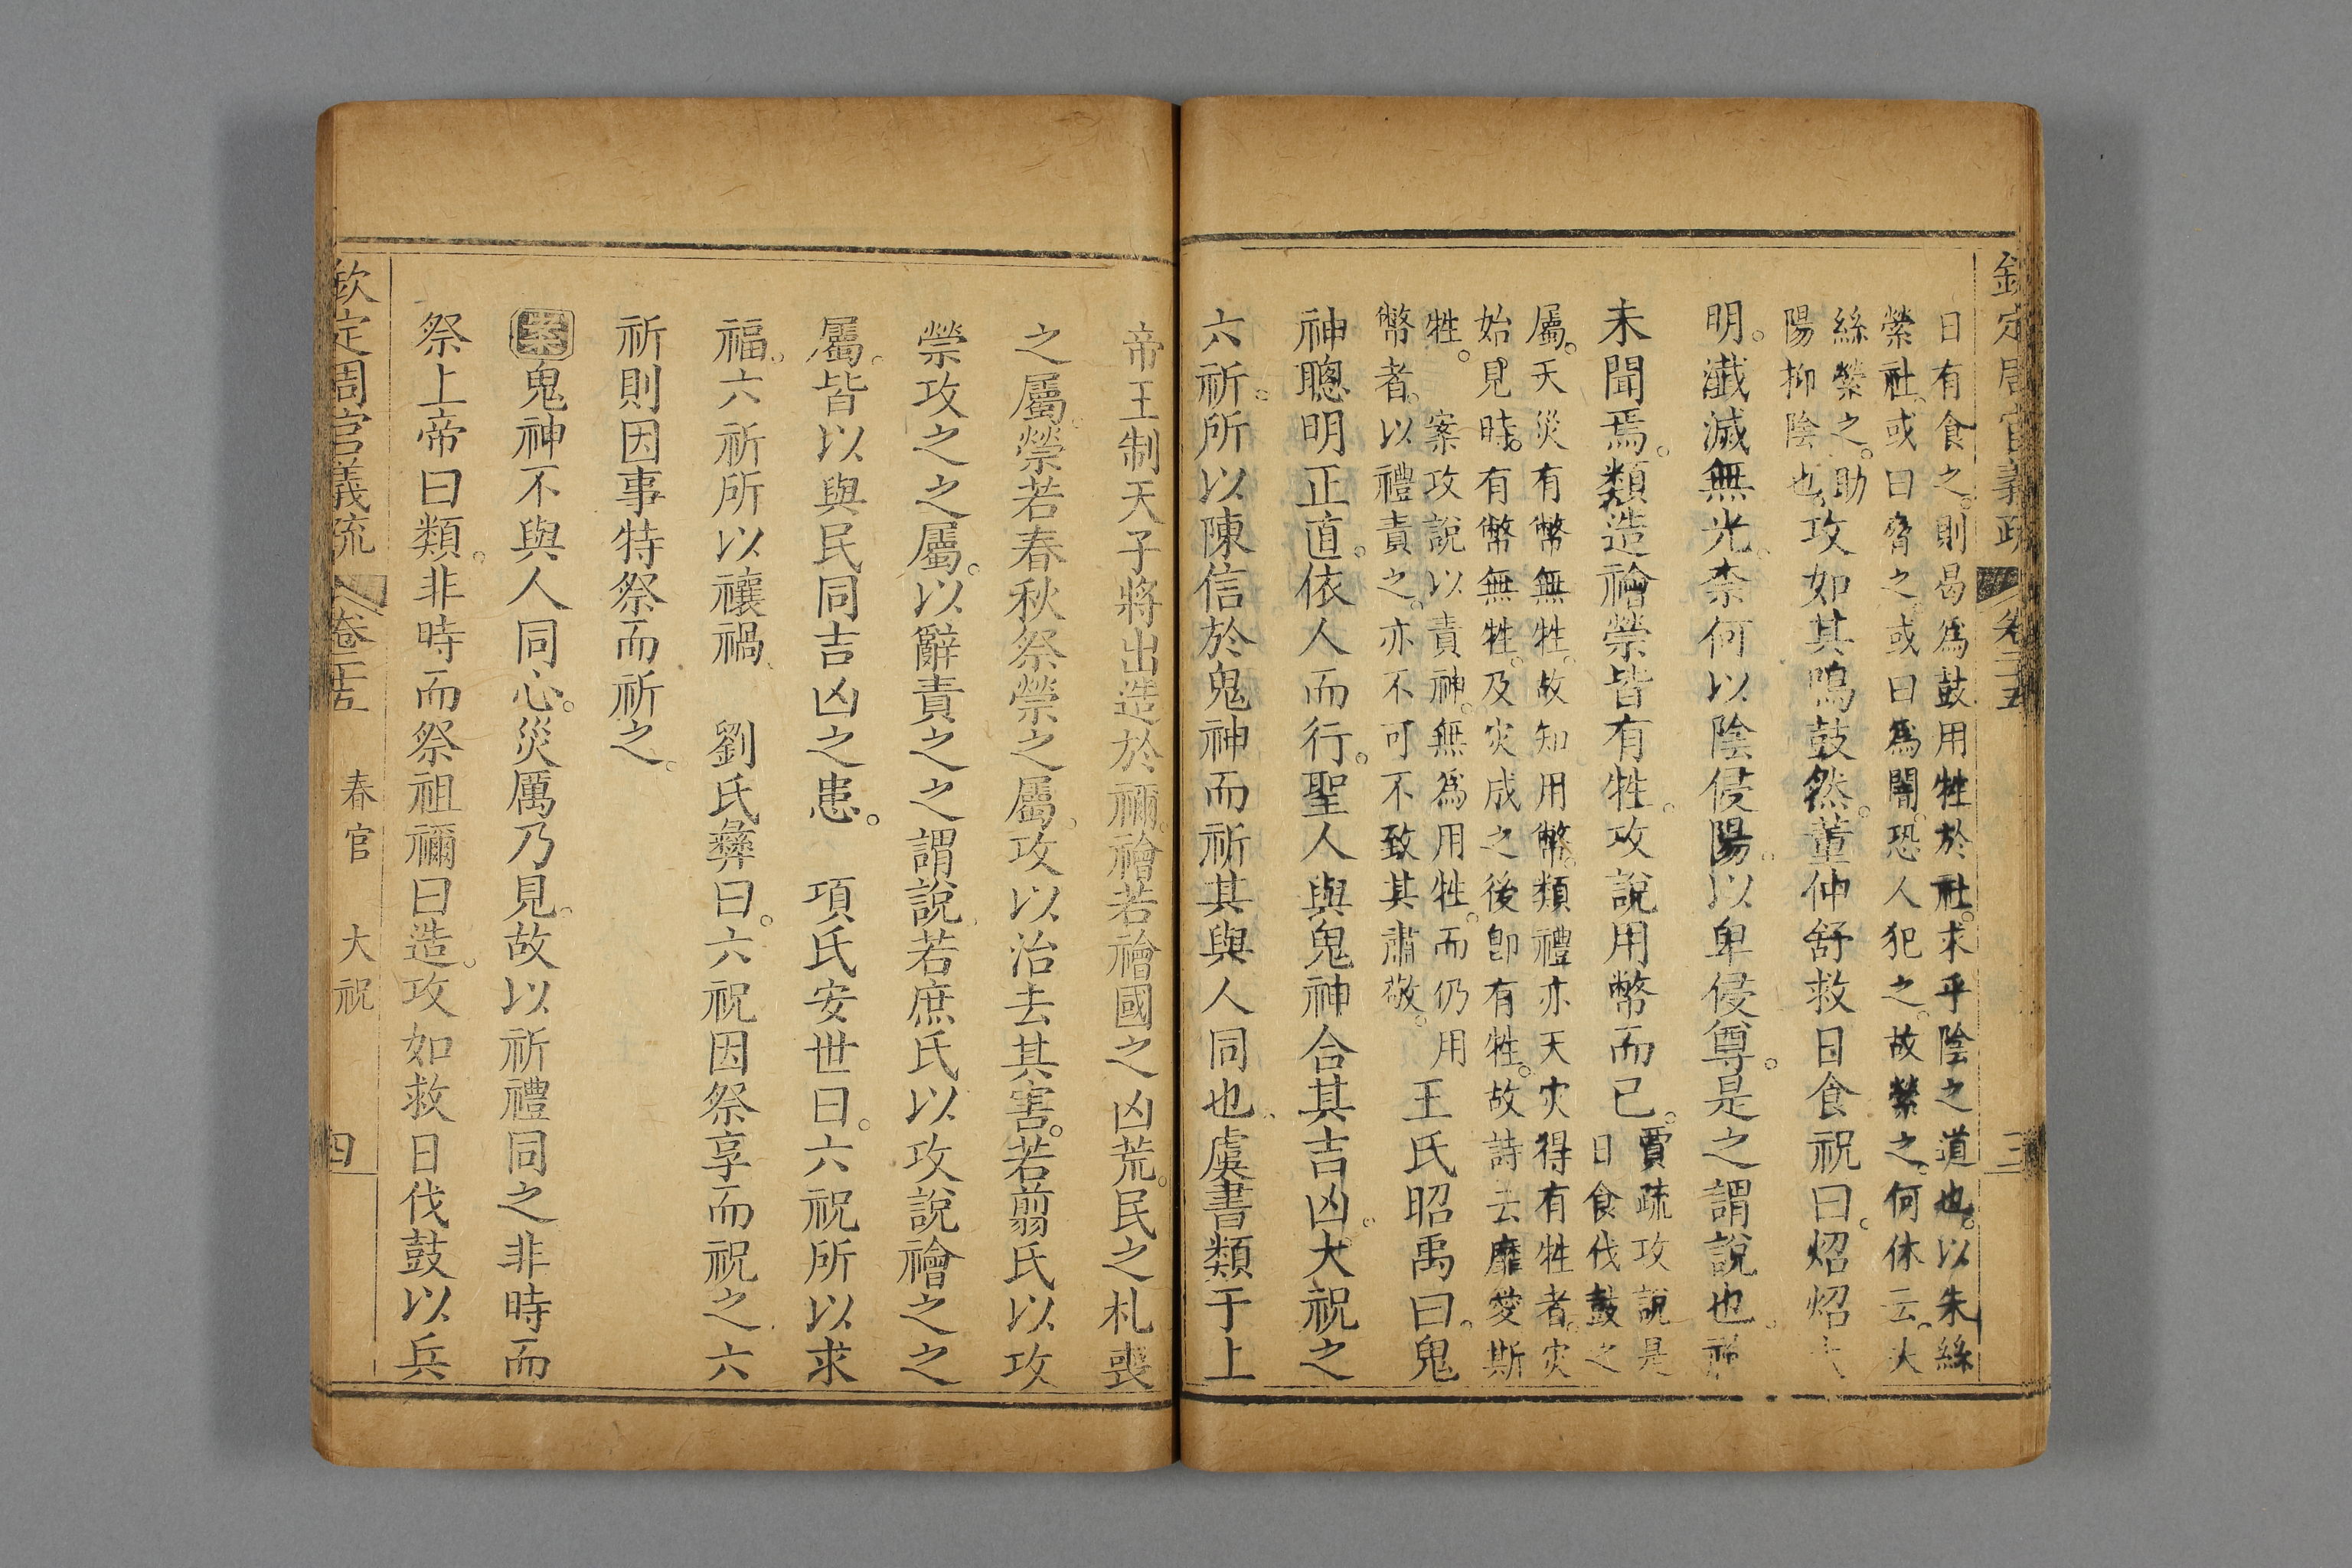 欽定周官義疏 卷二十五 三
日有食之則曷為鼓用牲於社求乎陰之道也以朱絲
縈社或曰脅之或曰為闇恐人犯之故縈之何休云
絲縈之助
陽抑陰也攻如其鳴鼓然董仲舒救日食祝曰炤炤
明瀸滅無光奈何以陰侵陽以卑侵尊是之謂說也
未聞焉類造禬禜皆有牲攻說用幣而已賈疏攻說是
日食伐鼓之
屬天災有幣無牲故知用幣類禮亦天災得有牲者災
始見時有幣無牲及災成之後卽有牲故詩云靡愛斯
牲 案攻說以責神無為用牲而仍用
幣者以禮責之亦不可不致其肅敬 王氏昭禹曰鬼
神聰明正直依人而行聖人與鬼神合其吉凶大祝之
六祈所以陳信於鬼神而祈其與人同也虞書類于上
帝王制天子將出造於禰禬若禬國之凶荒民之札喪
之屬禜若春秋祭禜之屬攻以治去其害若翦氏以攻
禜攻之之屬以辭責之之謂說若庶氏以攻說禬之之
屬皆以與民同吉凶之患 項氏安世曰六祝所以求
福六祈所以禳禍 劉氏彝曰六祝因祭享而祝之六
祈則因事特祭而祈之
案鬼神不與人同心災厲乃見故以祈禮同之非時而
祭上帝曰類非時而祭祖禰曰造攻如救日伐鼓以兵
欽定周官義疏 卷二十五 春官 大祝 四